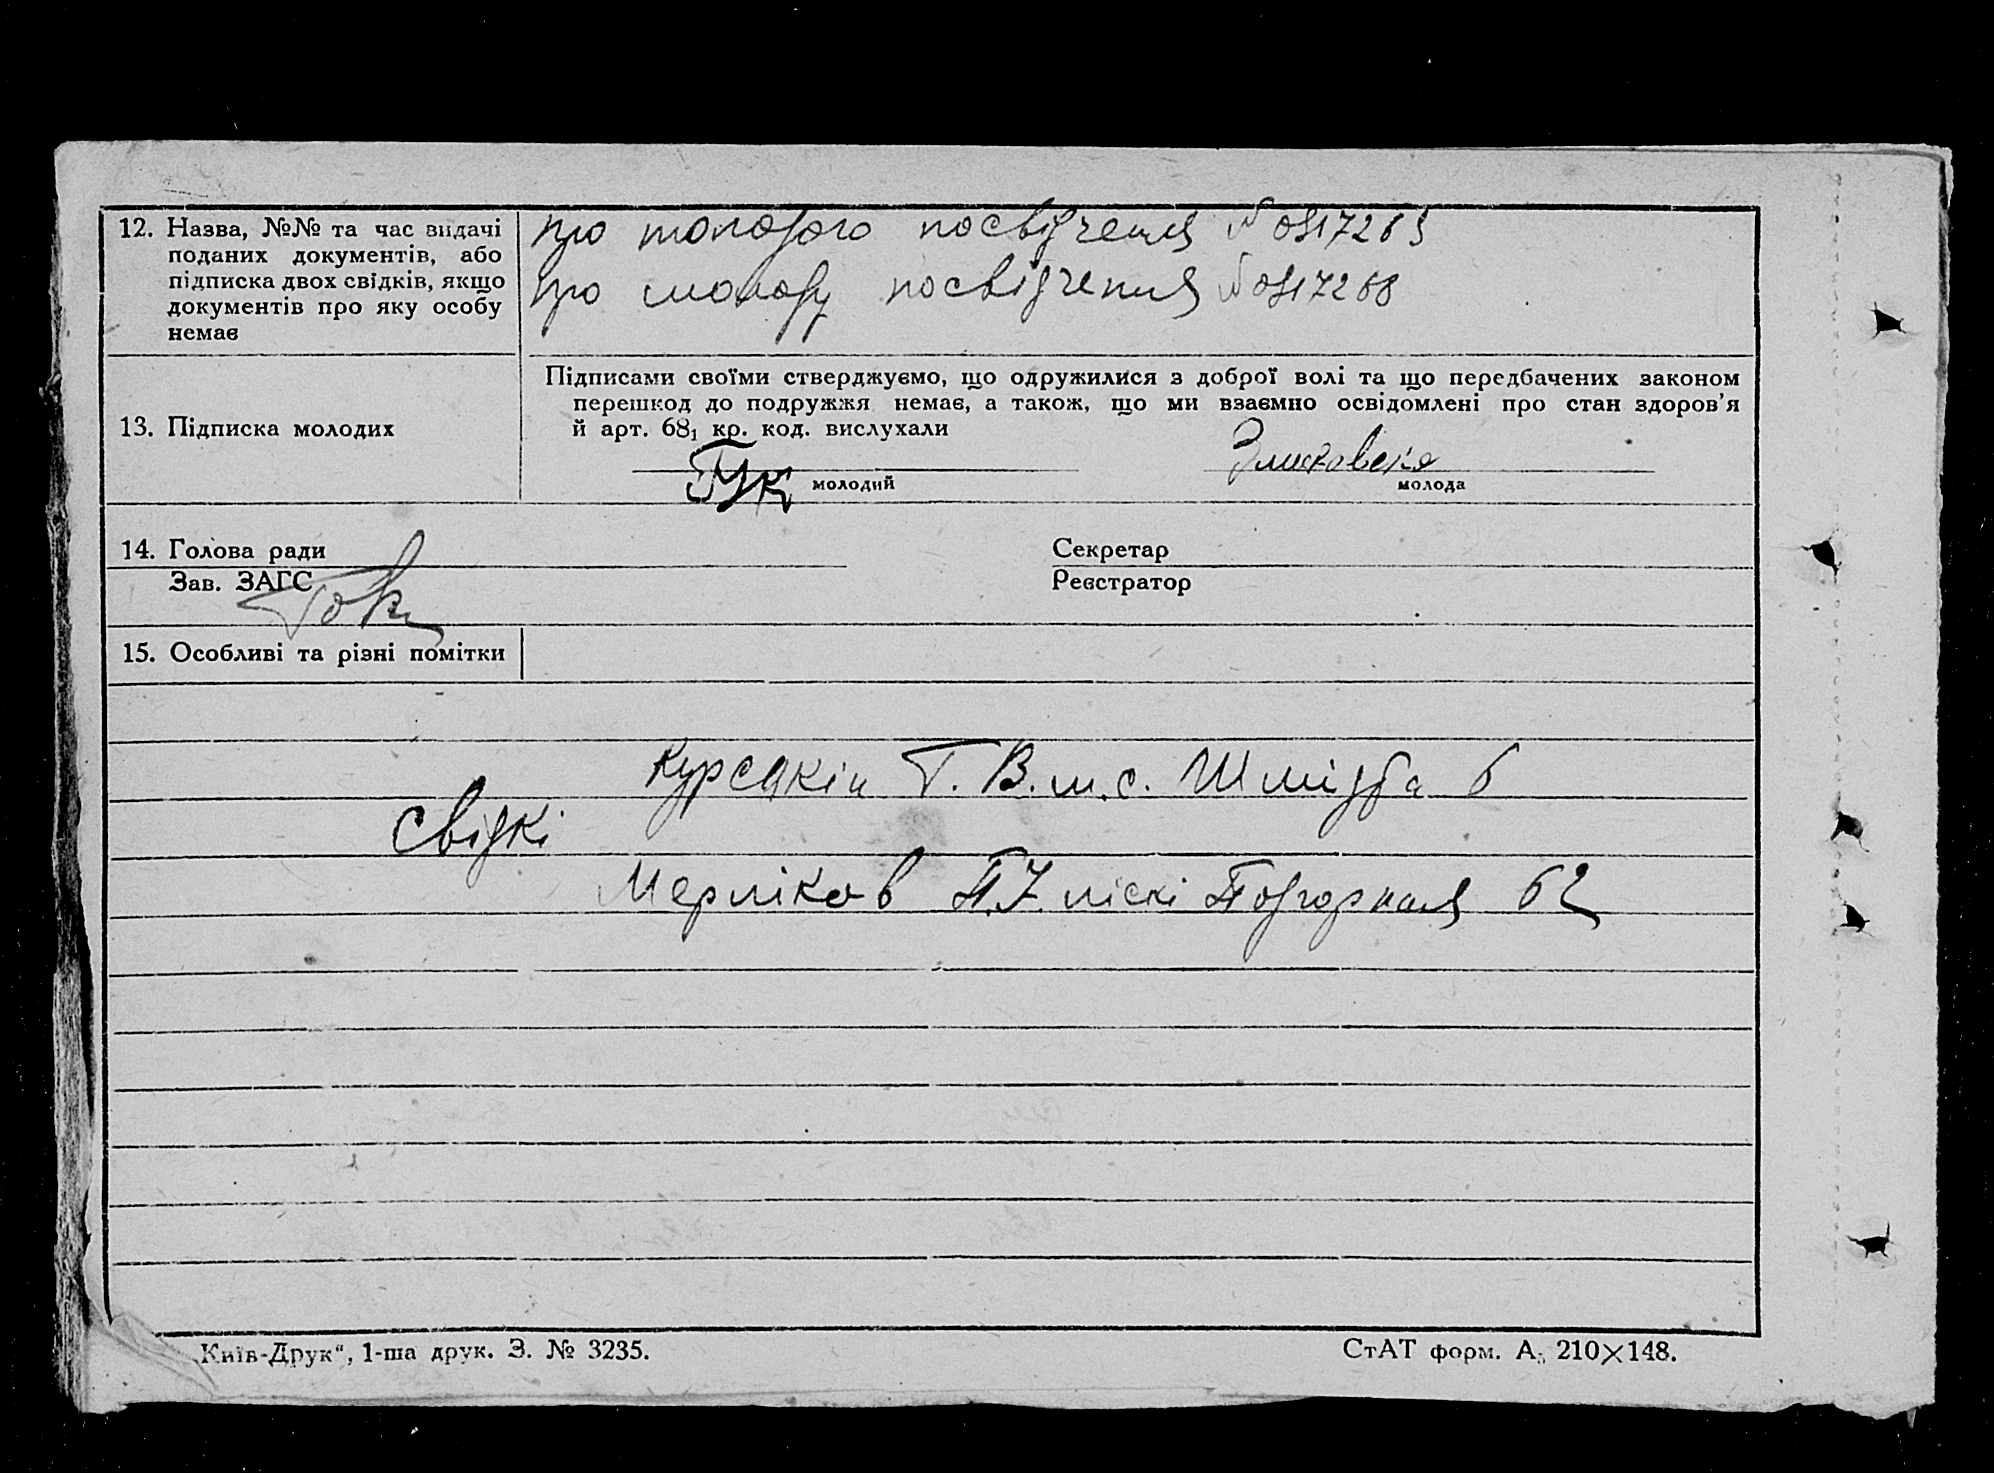 12. Назва, №№ та час видачі поданих документів, або підписка двох свідків, якщо документів про яку особу немає
про молодого посвідчення № 0817265
про молоду посвідчення № 0817268
13. Підписка молодих
Підписами своїми стверджуємо, що одружилися з доброї волі та що передбачених законом
перешкод до подружжя немає, а також, що ми взаємно освідомлені про стан здоров'я
й арт. 68₁ кр. код. вислухали
Гук молодий
молода
14. Голова ради
Секретар
Зав. ЗАГС
Реєстратор
15. Особливі та різні помітки
Курсакін Г. В. м. с. Шмідта 6
Свідкі
Мерліков П. піскі Подгорная 62
„Київ-Друк“, 1-ша друк. З. № 3235.
СтАТ форм. А₅ 210×148.